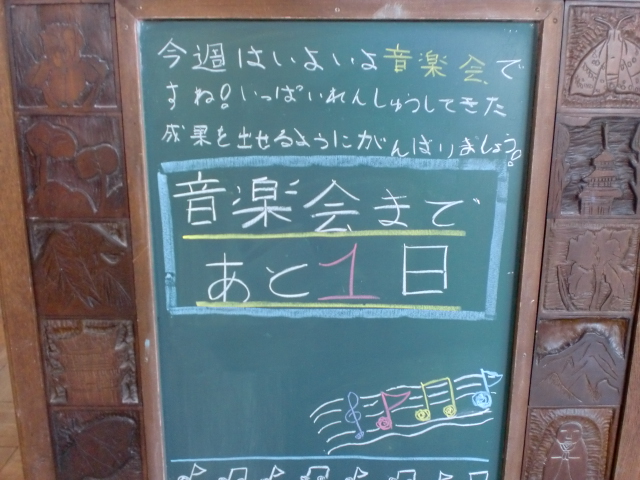 今週はいよいよ音楽会で
すね!いっぱいれんしゅうしてきた
成果を出せるようにがんばりましょう!
音楽会まで
あと1日